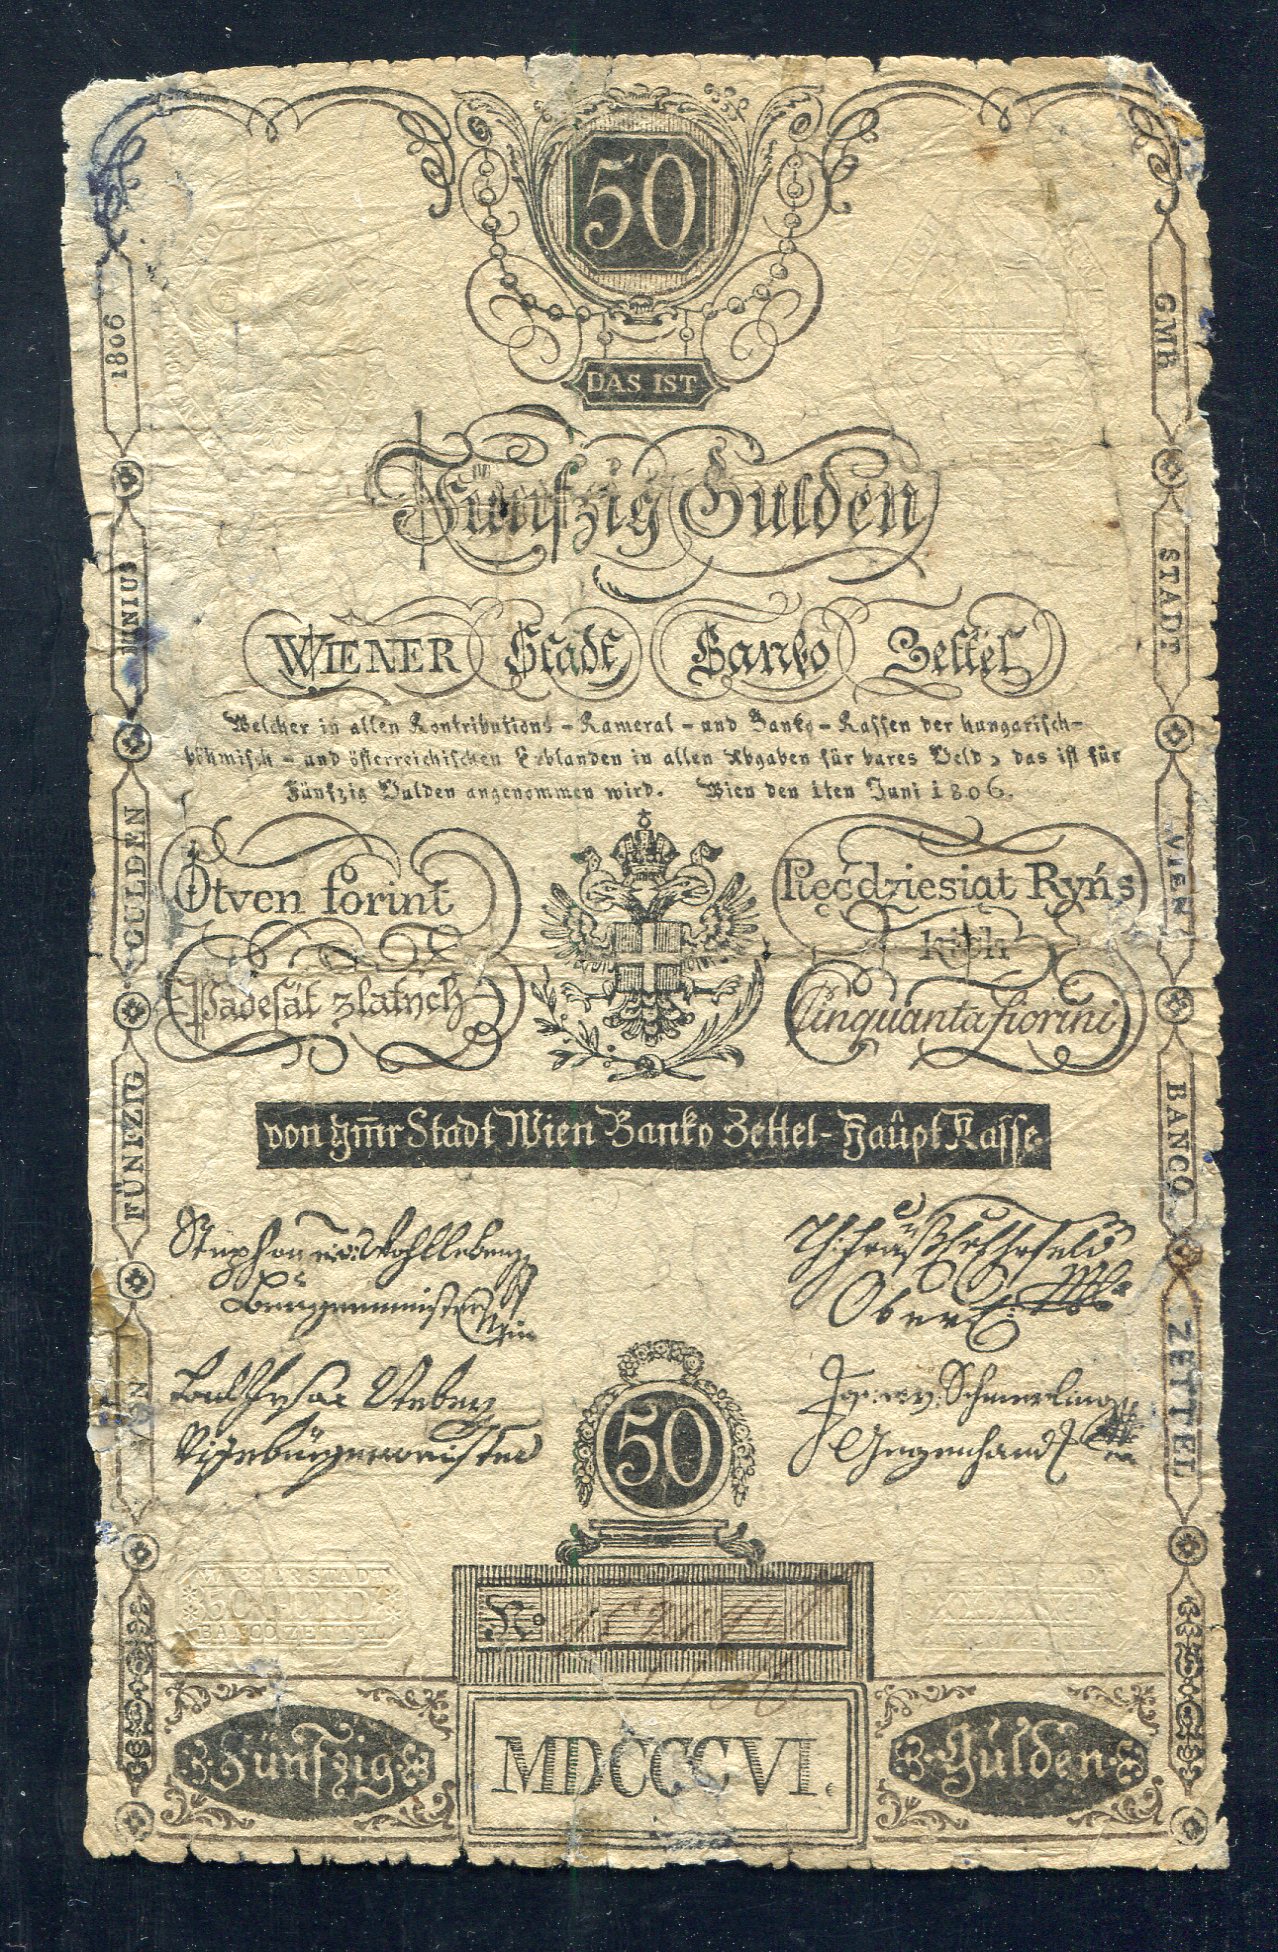 50
DAS IST
Fünfzig Gulden
WIENER Stadt Banko Zettel
Welcher in allen Kontributions - Kameral - und Banko - Kassen der hungarisch-
böhmisch - und österreichischen Erblanden in allen Abgaben für bares Geld, das ist für
Fünfzig Gulden angenommen wird. Wien den 1ten Juni 1806.
Ötven forint
Pięćdziesiąt Ryńs
kich
Padesát zlatých
Cinquanta fiorini
von Ihr Stadt Wien Banko Zettel - Haupt Kasse.
Stephan E. v: Wohlleben
Burgermeister
Ober
Vizebürgermeister
Jos: v: Schmerling
Gegenhandl
50
WIENER STADT
50 GULD
BANCO ZETTEL
No
MDCCCVI.
Fünfzig
Gulden
VON FÜNFZIG GULDEN IUNIUS 1806
GMR STADT WIEN BANCO ZETTEL